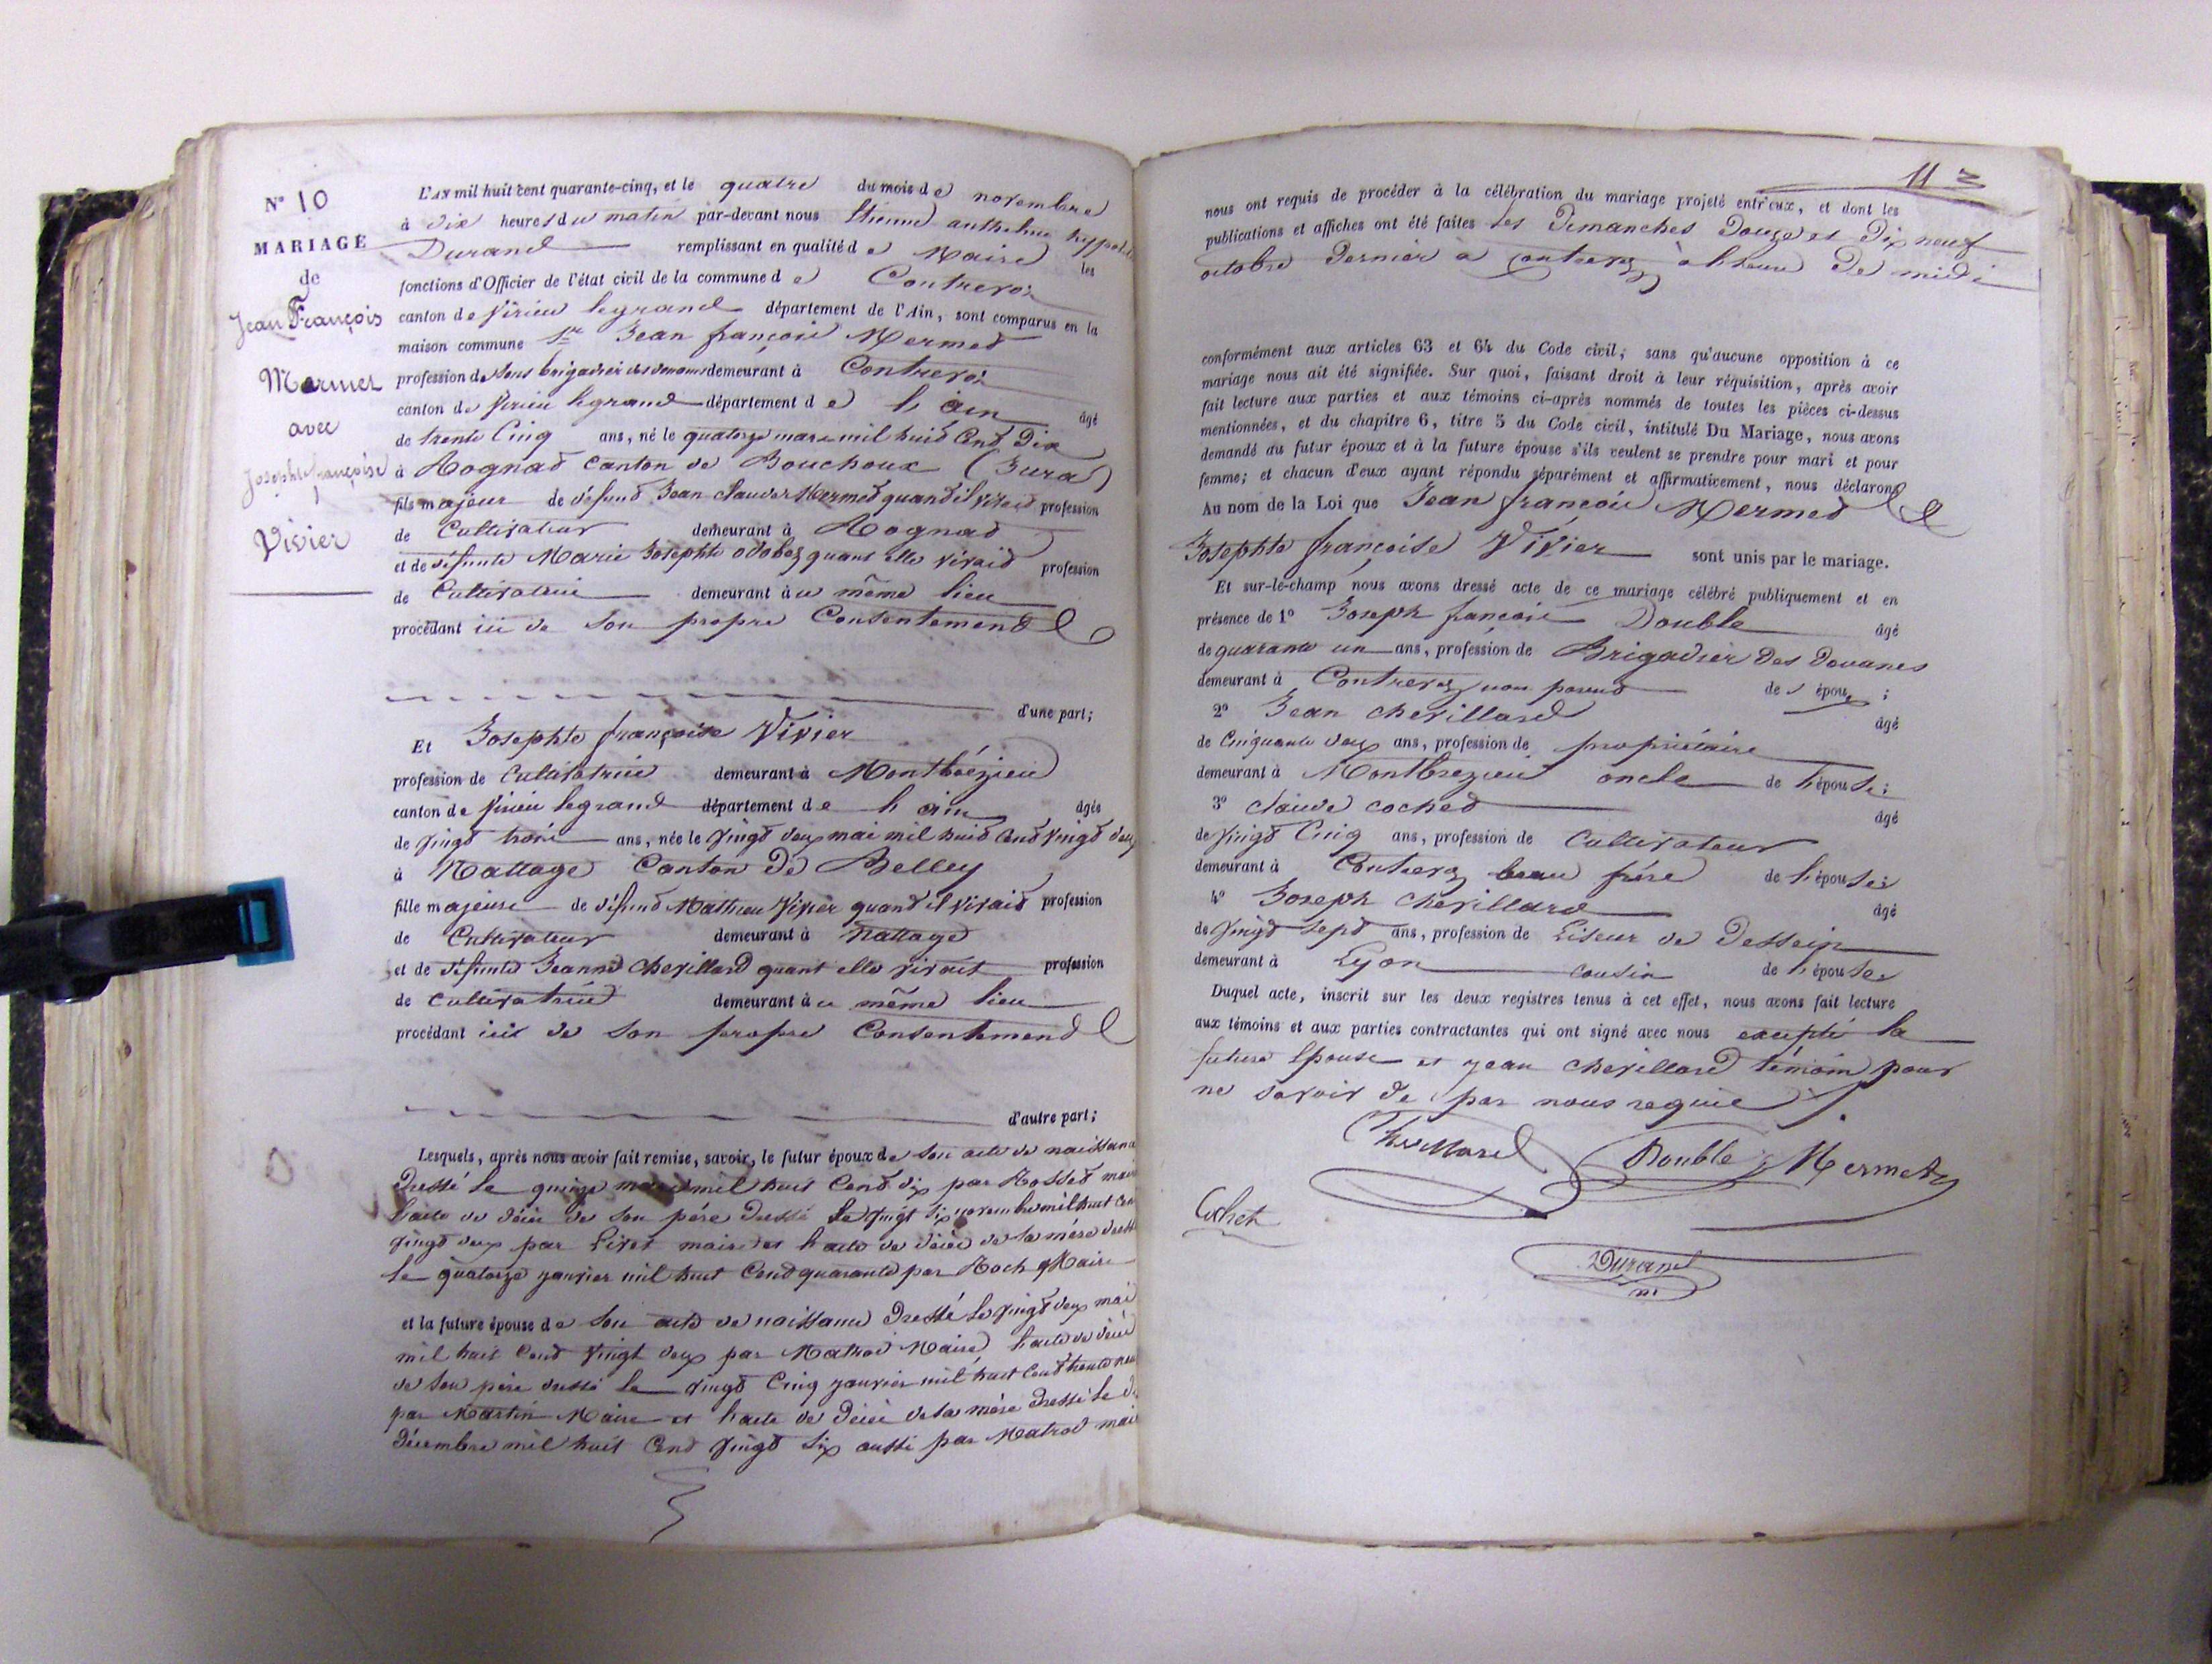 N° 10
MARIAGE
de
Jean François
Mermet
avec
Josephte françoise
Vivier
L'AN mil huit cent quarante-cinq, et le quatre du mois de novembre
à dix heures du matin par-devant nous Etienne anthelme hypolite
Durand remplissant en qualité de Maire les
fonctions d'Officier de l'état civil de la commune de Contrevoz
canton de Virieu legrand département de l'Ain, sont comparus en la
maison commune Sr Jean françois Mermed
profession de sous brigadier des douanes demeurant à Contrevoz
canton de Virieu legrand département de l'ain âgé
de trente Cinq ans, né le quatorze mars mil huid Cend Dix
à Rognad Canton de Bouchoux (Jura)
fils majeur de défund Jean Claude Mermed quand il vivaid profession
de Cultivateur demeurant à Rognad
et de défunte Marie Josephte odobez quant elle vivaid profession
de Cultivatrice demeurant au même lieu
procédant ici de son propre Consentemend
d'une part;
Et Josephte françoise Vivier
profession de Cultivatrice demeurant à Montbrézieu
canton de Virieu legrand département de l'ain âgée
de Vingd trois ans, née le Vingd deux mai mil huid Cend Vingd deux
à Nattage Canton de Belley
fille majeure de défund Mathieu Vivier quand il vivaid profession
de Cultivateur demeurant à Nattage
et de défunte Jeanne Chevillard quant elle vivait profession
de Cultivatrice demeurant au même lieu
procédant ici de son propre Consentemend
d'autre part;
Lesquels, après nous avoir fait remise, savoir, le futur époux de son acte de naissance
Dressé le quinze mars mil huit Cend dix par Rossed maire
l'acte de décès de son père Dressé le Vingt six novembre mil huit Cend
Vingd deux par Livet maire et l'acte de décès de sa mère dressé
le quatorze janvier mil huit Cend quarante par Roch Maire
et la future épouse de son acte de naissance Dressé le Vingd deux mai
mil huit Cend Vingt deux par Matrod Maire l'acte de décès
de son père dressé le Vingd Cinq janvier mil huit Cend trente neuf
par Martin Maire et l'acte de décès de sa mère Dressé le
Décembre mil huit Cend Vingd Six aussi par Matrod maire
11
nous ont requis de procéder à la célébration du mariage projeté entr'eux, et dont les
publications et affiches ont été faites les Dimanches Douze et Dix neuf
octobre Dernier à Contrevoz à l'heure De midi
conformément aux articles 63 et 64 du Code civil; sans qu'aucune opposition à ce
mariage nous ait été signifiée. Sur quoi, faisant droit à leur réquisition, après avoir
fait lecture aux parties et aux témoins ci-après nommés de toutes les pièces ci-dessus
mentionnées, et du chapitre 6, titre 5 du Code civil, intitulé Du Mariage, nous avons
demandé au futur époux et à la future épouse s'ils veulent se prendre pour mari et pour
femme; et chacun d'eux ayant répondu séparément et affirmativement, nous déclarons
Au nom de la Loi que Jean françois Mermed et
Josephte françoise Vivier sont unis par le mariage.
Et sur-le-champ nous avons dressé acte de ce mariage célébré publiquement et en
présence de 1° Joseph françois Double âgé
de quarante un ans, profession de Brigadier des Douanes
demeurant à Contrevoz non parend des époux;
2° Jean Chevillard âgé
de Cinquante deux ans, profession de propriétaire
demeurant à Montbrezieu oncle de l'épouse;
3° Claude Coched âgé
de Vingd Cinq ans, profession de Cultivateur
demeurant à Contrevoz beau frère de l'épouse;
4° Joseph Chevillard âgé
de Vingd Sept ans, profession de Liseur de Dessein
demeurant à Lyon cousin de l'épouse
Duquel acte, inscrit sur les deux registres tenus à cet effet, nous avons fait lecture
aux témoins et aux parties contractantes qui ont signé avec nous excepté la
future Epouse et Jean Chevillard témoin pour
ne savoir de par nous requis
Chevillard Double Mermet
Cochet
Durand
m